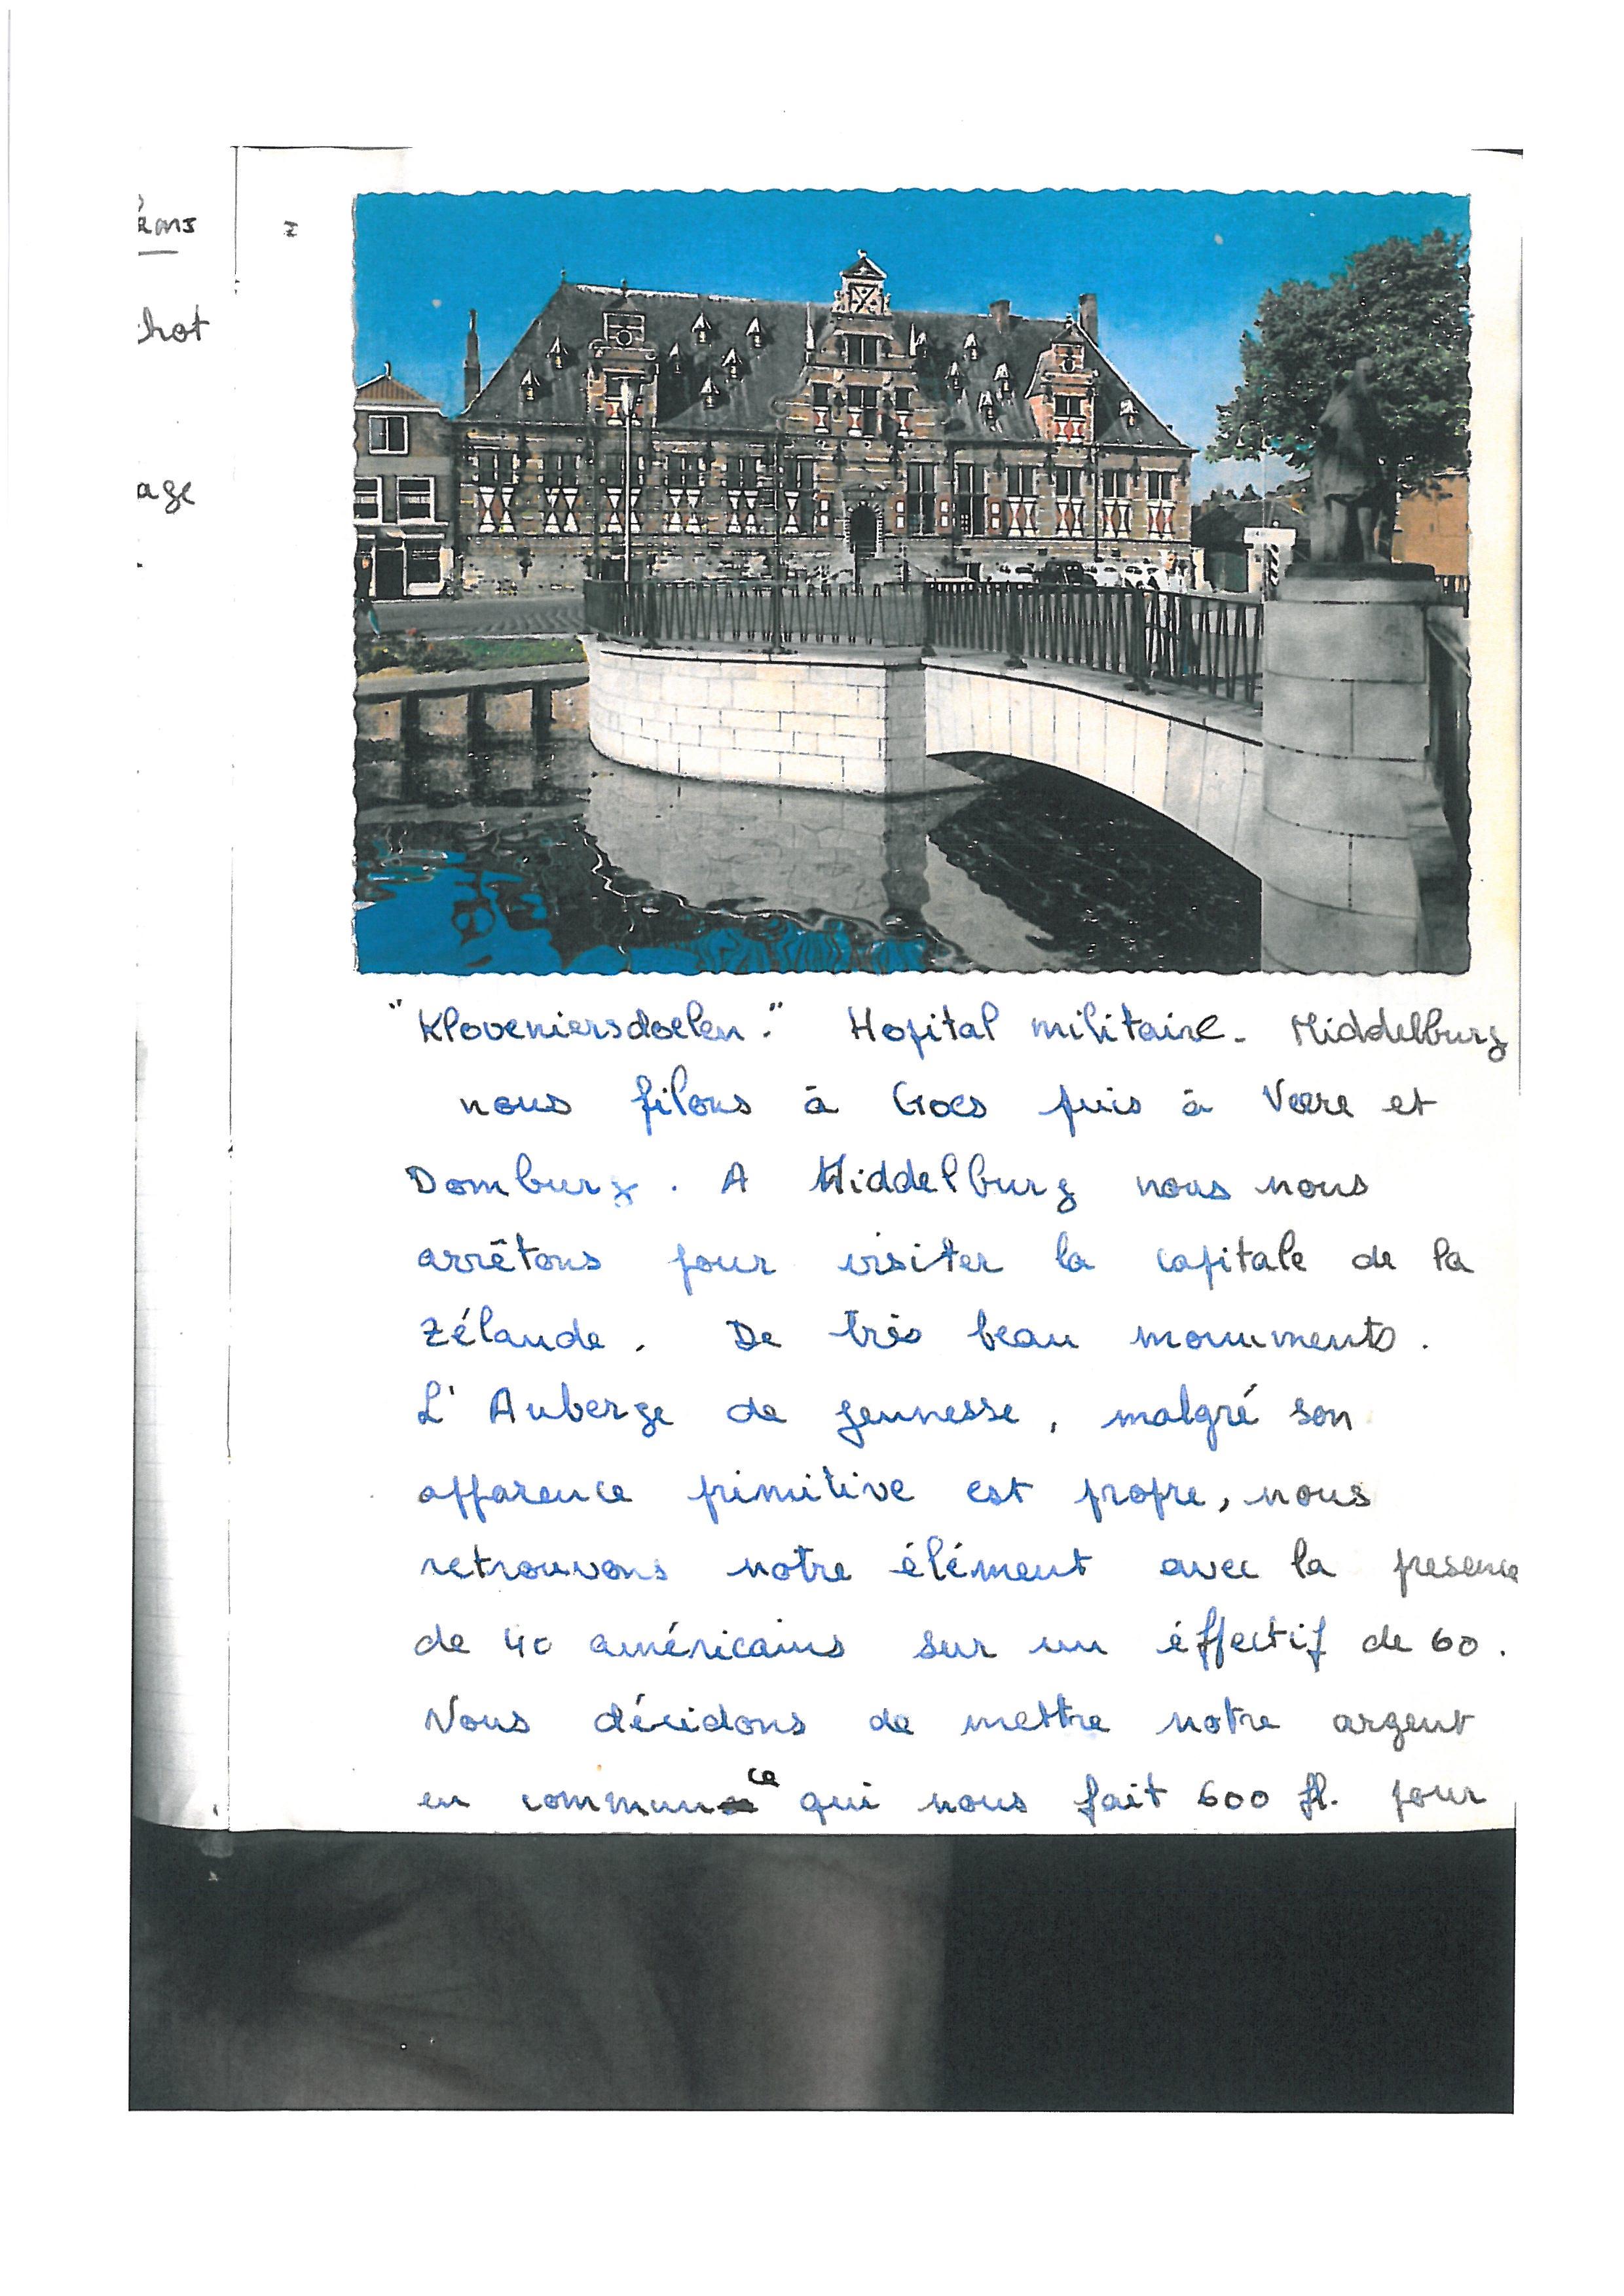 "Kloveniersdoelen." Hopital militaire. Middelburg
nous filons à Goes puis à Veere et
Domburg. A Middelburg nous nous
arrêtons pour visiter la capitale de la
Zélande. De très beau monuments.
L'Auberge de jeunesse, malgré son
apparence primitive est propre, nous
retrouvons notre élément avec la presence
de 40 américains sur un éffectif de 60.
Nous décidons de mettre notre argent
en commun ce qui nous fait 600 fl. pour